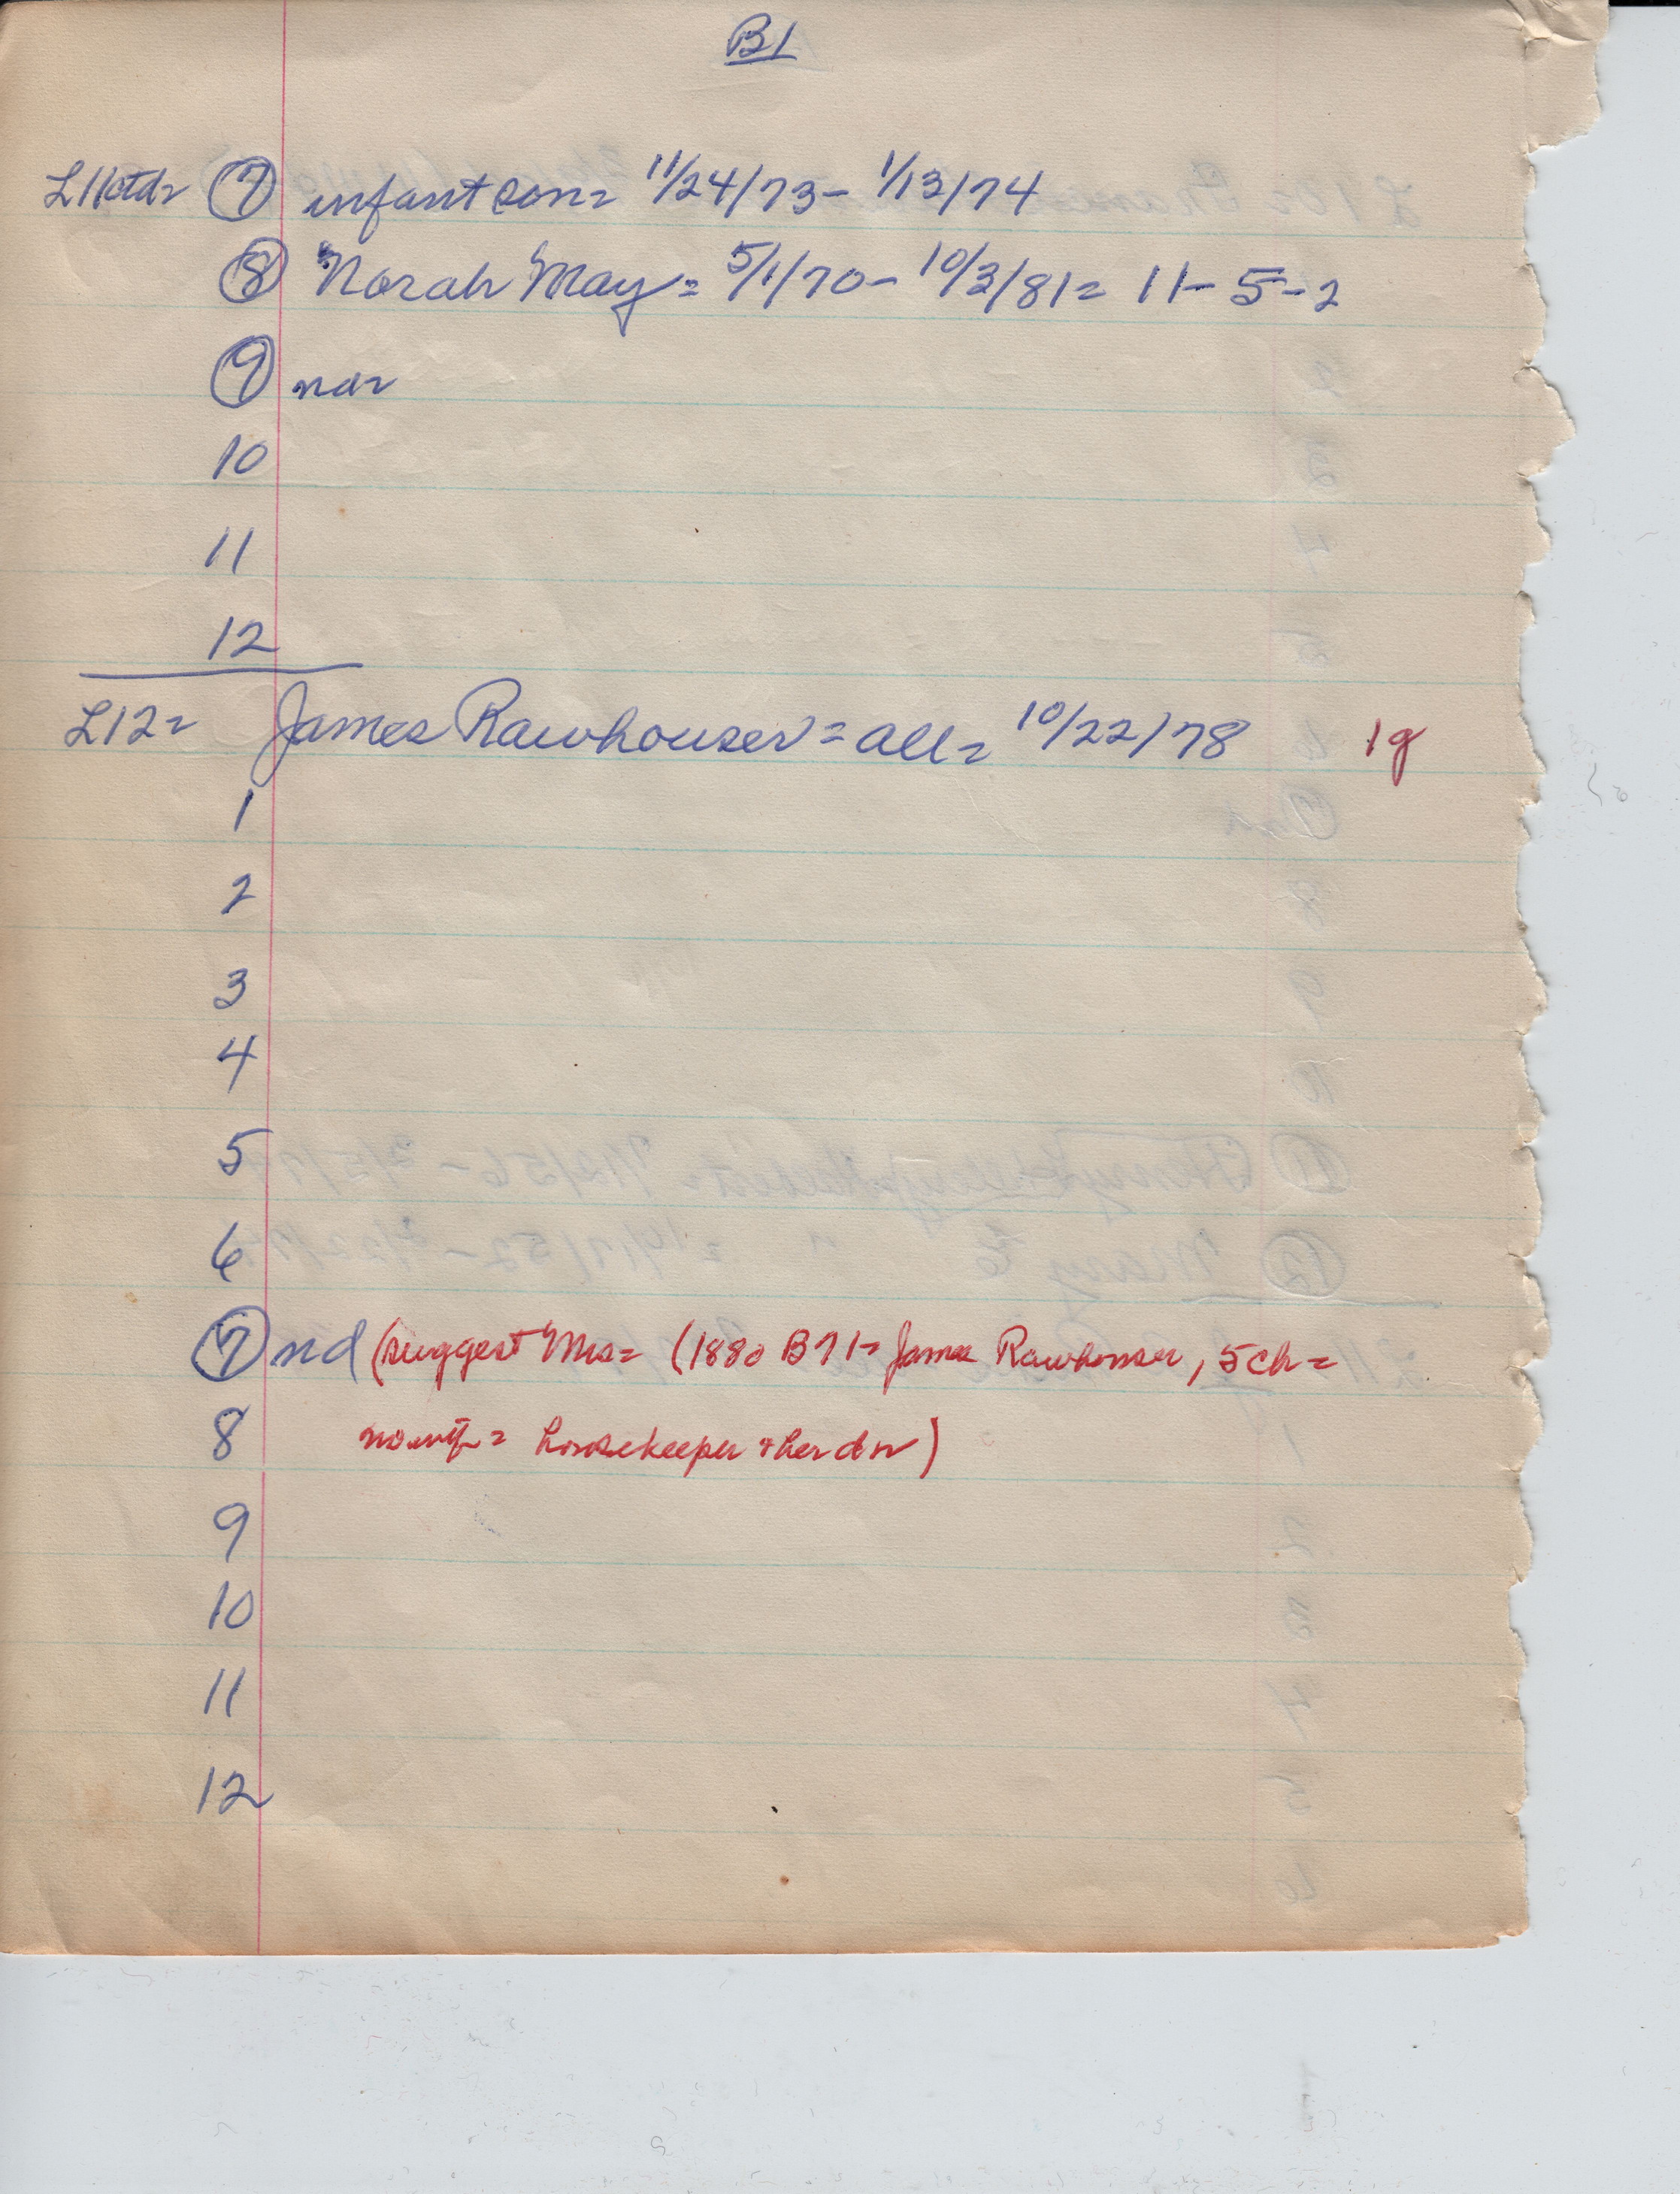 B1
L11ctd= 7 infant son= 11/24/73- 1/13/74
8 Norah May= 5/1/70- 10/3/81= 11-5-2
9 nd=
10
11
12
L12= James Rawhouser= all= 10/22/78 1g
1
2
3
4
5
6
7 nd (suggest Mrs= (1880 B71= James Rawhouser, 5ch=
8 no wf= housekeeper & her dr)
9
10
11
12